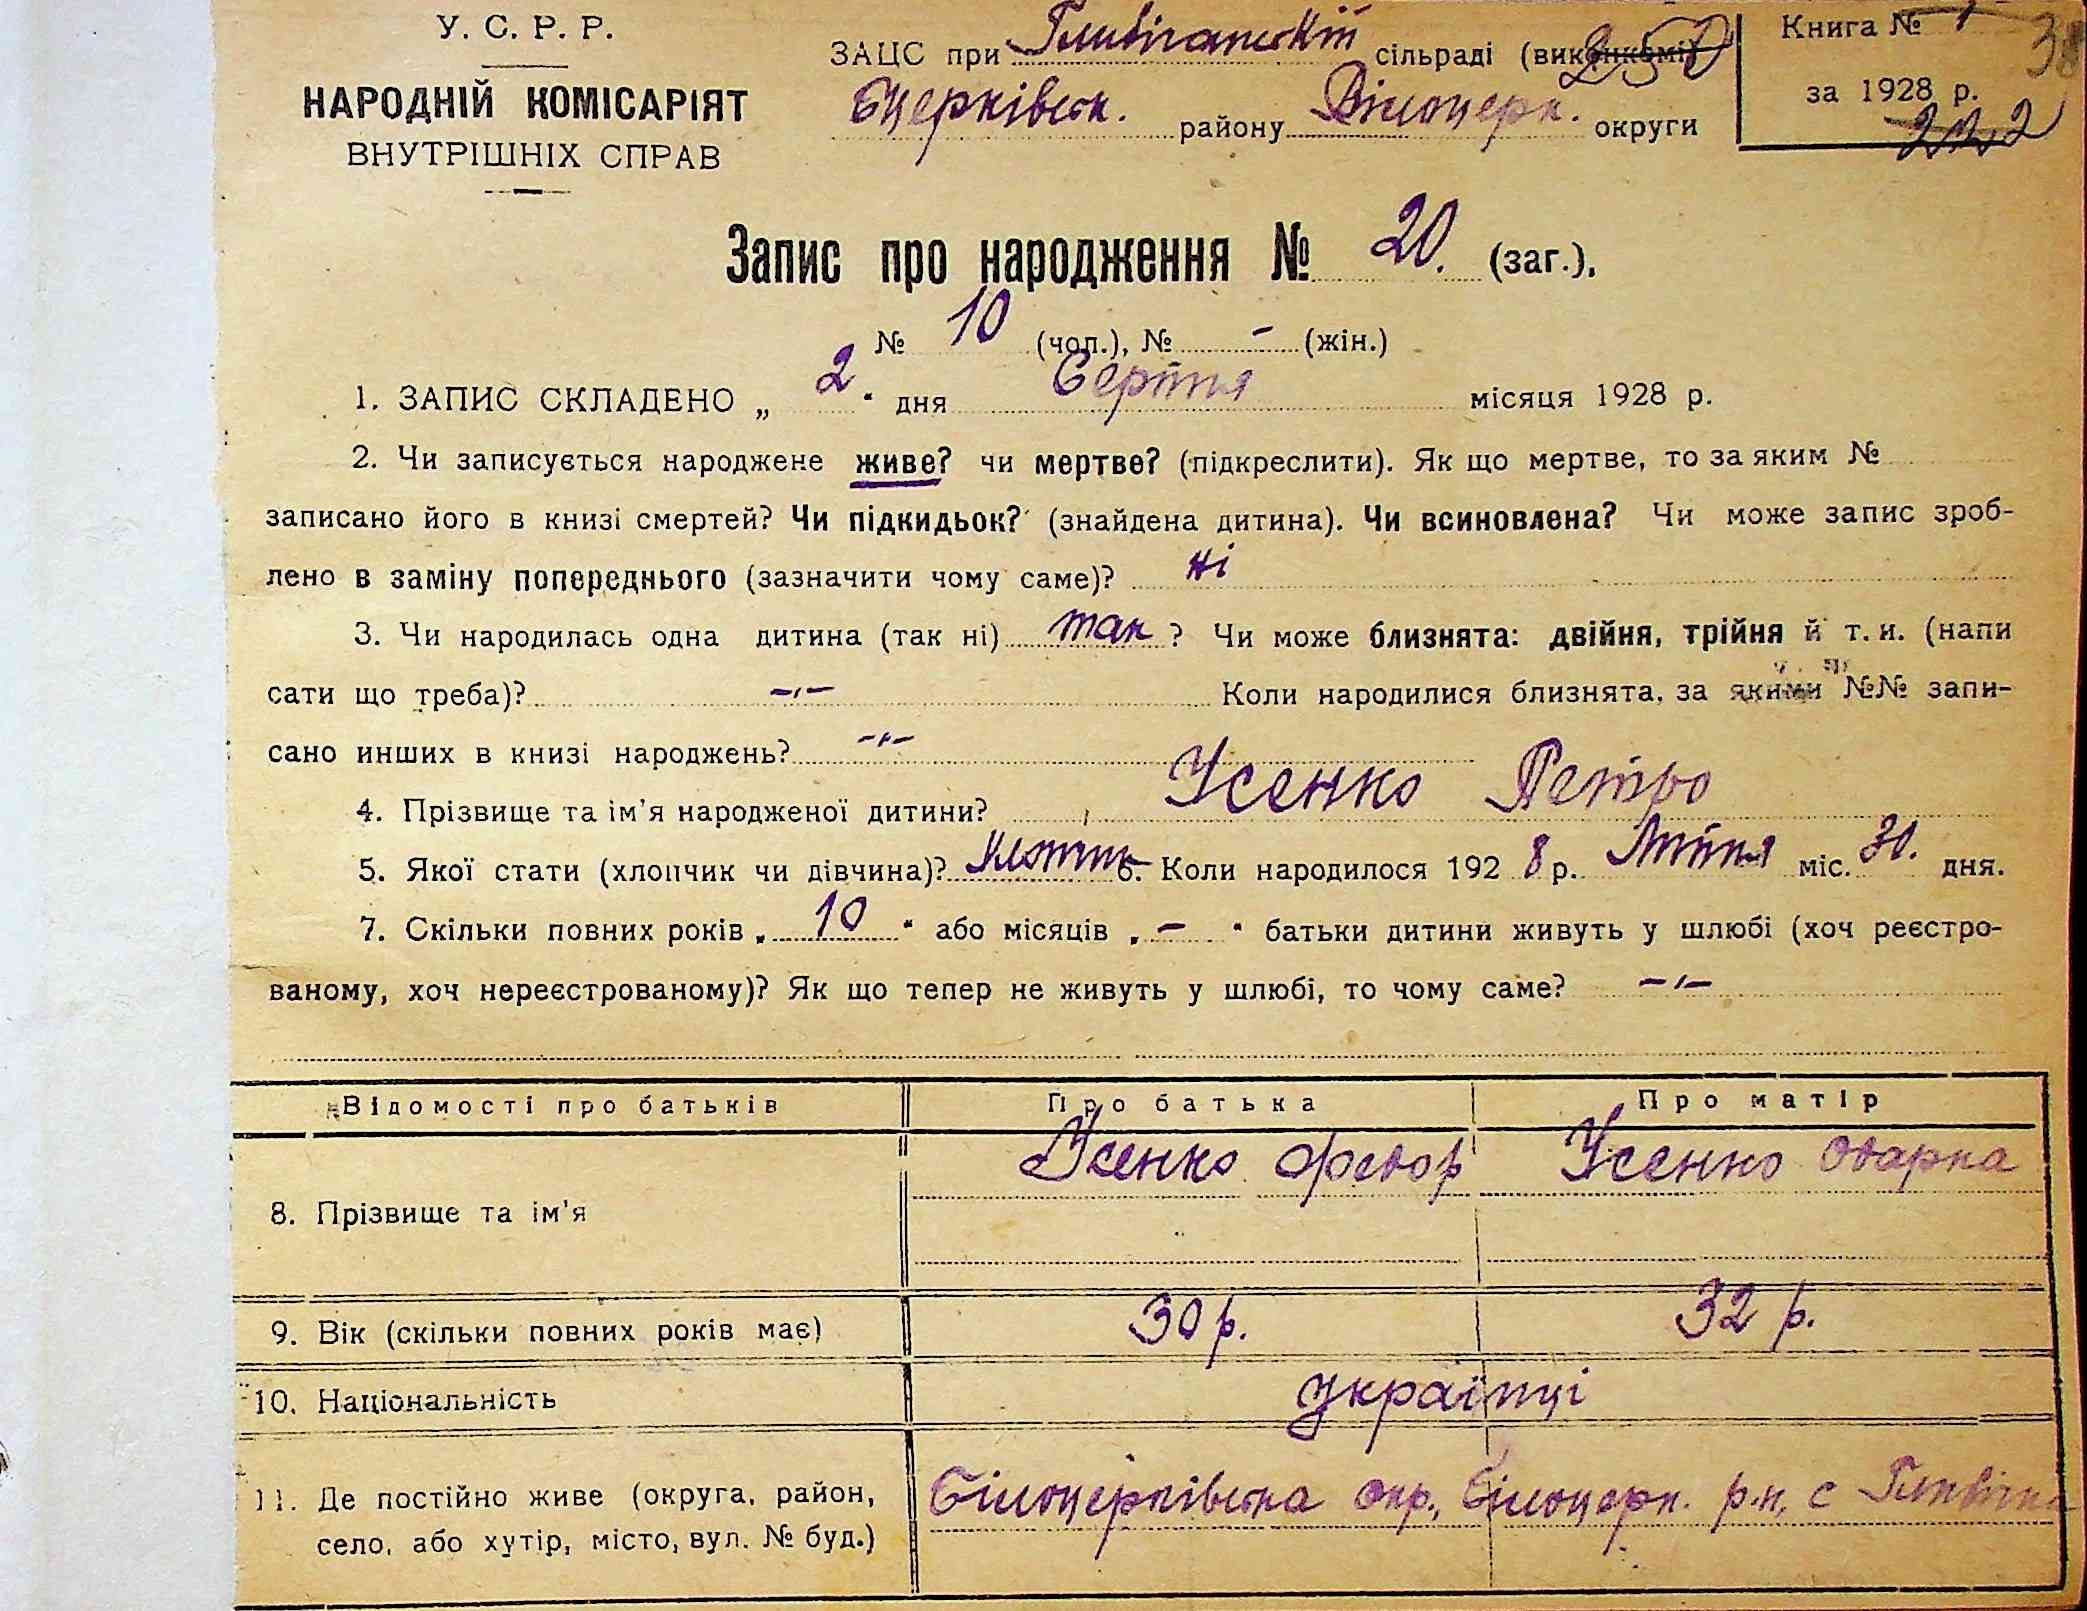 У. С. Р. Р.
НАРОДНІЙ КОМІСАРІЯТ
ВНУТРІШНІХ СПРАВ
ЗАЦС при сільраді (виконкомі)
Бцерківськ. району Білоцерк. округи
Книга № 1
за 1928 р.
222
38
250
Запис про народження № 20. (заг.),
№ 10 (чол.), № - (жін.)
1. ЗАПИС СКЛАДЕНО „ 2 “ дня Серпня місяця 1928 р.
2. Чи записується народжене живе? чи мертве? (підкреслити). Як що мертве, то за яким №
записано його в книзі смертей? Чи підкидьок? (знайдена дитина). Чи всиновлена? Чи може запис зроб-
лено в заміну попереднього (зазначити чому саме)? ні
3. Чи народилась одна дитина (так ні) так ? Чи може близнята: двійня, трійня й т. и. (напи
сати що треба)? -,,- Коли народилися близнята, за якими №№ запи-
сано инших в книзі народжень? -,,-
4. Прізвище та ім'я народженої дитини? Усенко Петро
5. Якої стати (хлопчик чи дівчина)? 6. Коли народилося 192 8 р. Липня міс. 30. дня.
7. Скільки повних років „ 10 “ або місяців „ - “ батьки дитини живуть у шлюбі (хоч реєстро-
ваному, хоч нереєстрованому)? Як що тепер не живуть у шлюбі, то чому саме? -,,-
Відомості про батьків Про батька Про матір
8. Прізвище та ім'я Усенко Федор Усенко Одарка
9. Вік (скільки повних років має) 30 р. 32 р.
10. Національність українці
11. Де постійно живе (округа, район, село, або хутір, місто, вул. № буд.) Білоцерківська окр., Білоцерк. р-н, с